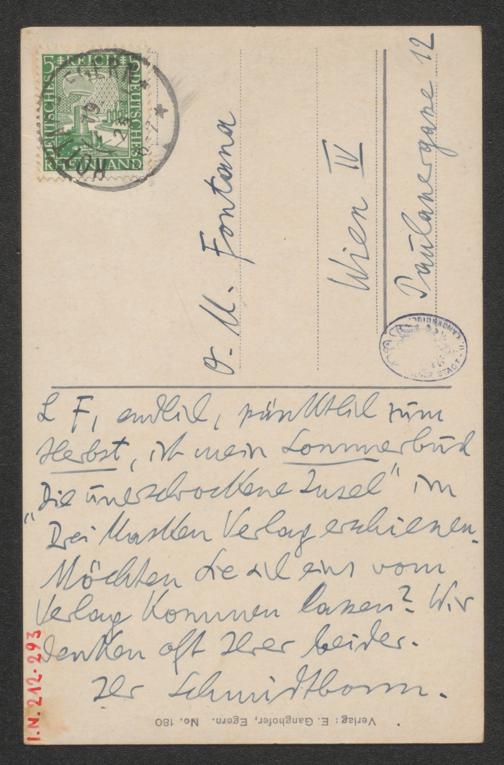 5 REICH 5
DEUTSCHES
DEUTSCHES
RHEINLAND
EGERN
O. M. Fontana
Wien IV
Paulanergasse 12
L F, endlich, pünktlich zum
Herbst, ist mein Sommerbuch
"Die unerschrockene Insel" im
Drei Masken Verlag erschienen.
Möchten Sie sich eins vom
Verlag kommen lassen? Wir
denken oft Ihrer beider.
Ihr Schmidtbonn.
Verlag: E. Ganghofer, Egern. No. 180
I.N. 212.293